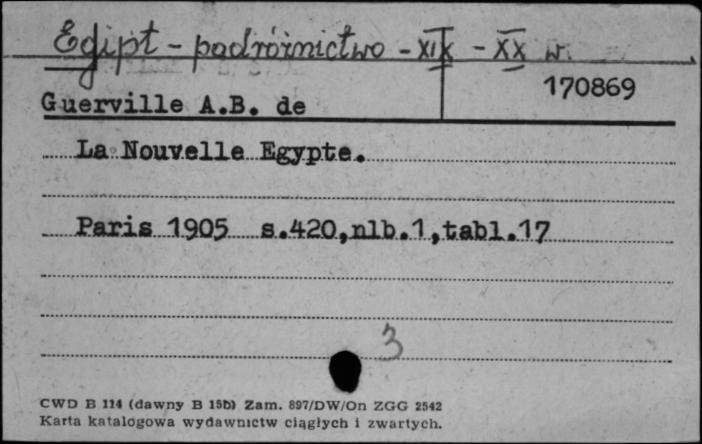 Egipt - podróżnictwo - XIX - XX w.
170869
Guerville A.B. de
La Nouvelle Egypte.
Paris 1905 s.420,nlb.1,tabl.17
3
CWD B 114 (dawny B 15b) Zam. 897/DW/On ZGG 2542
Karta katalogowa wydawnictw ciągłych i zwartych.